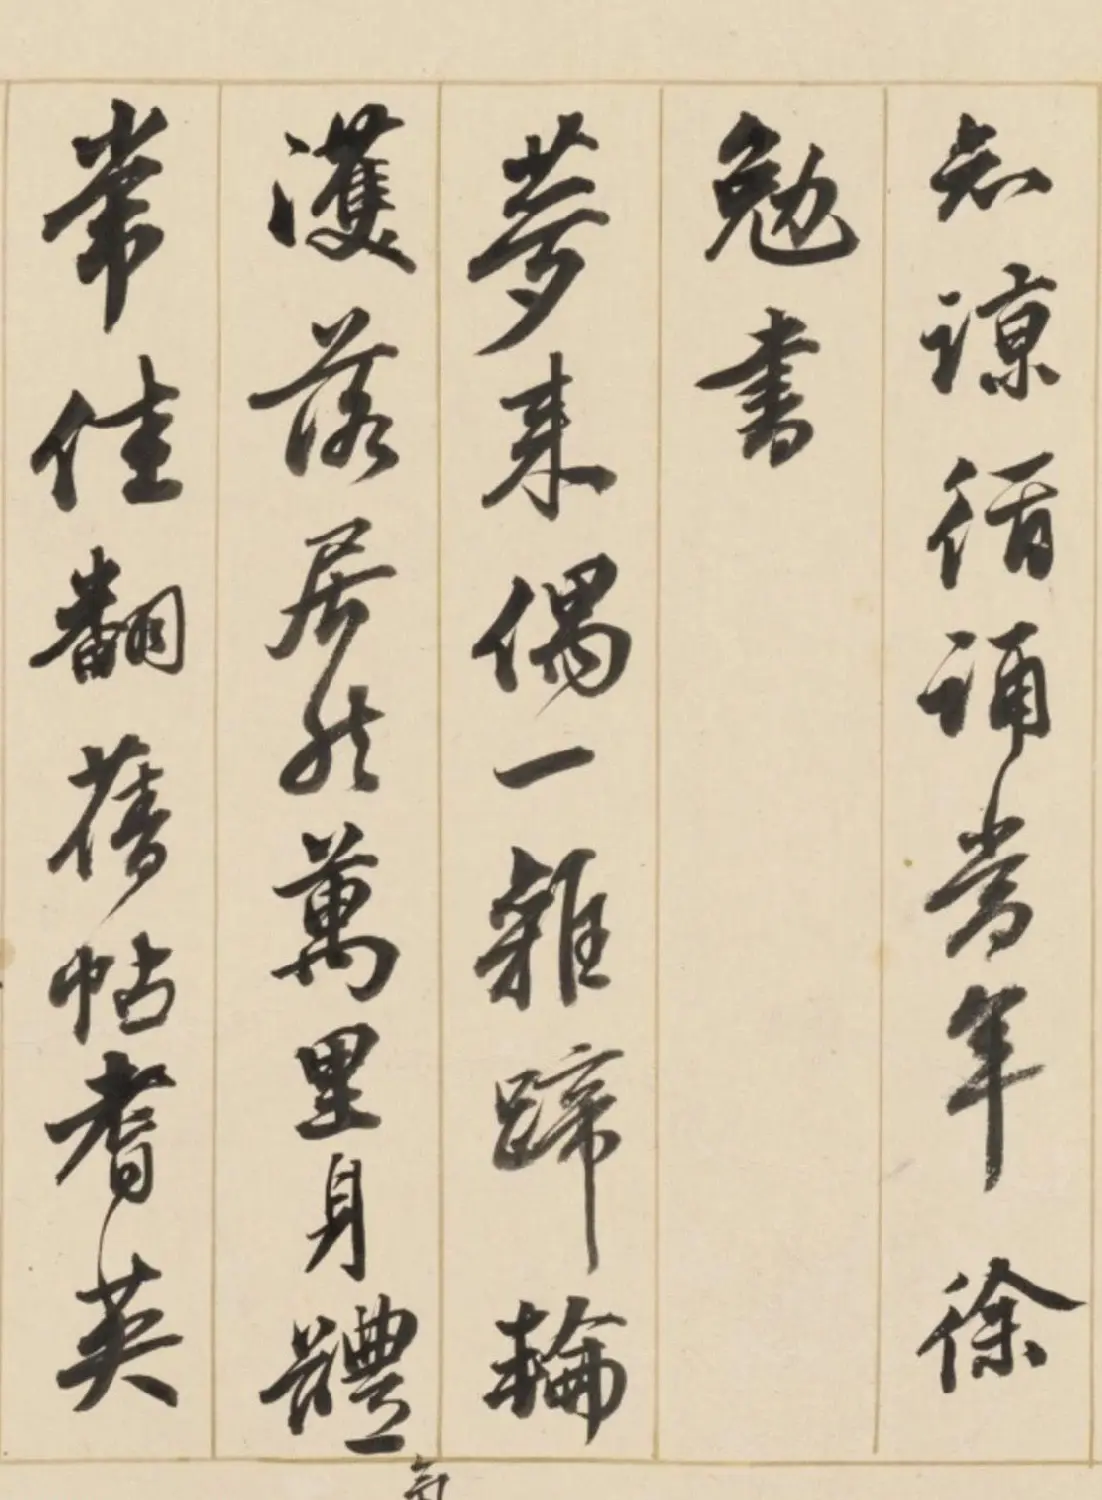 知諒循誦當年徐
勉書
夢來偶一雜蹄輪
濩落居然萬里身體
常佳翻舊帖耆英